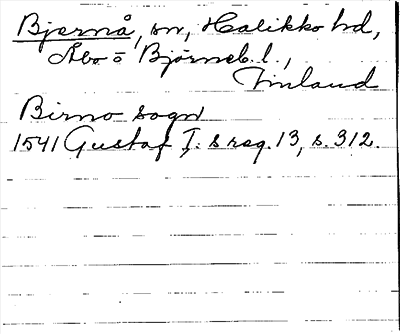 Bjärnå, sn, Halikko hd,
Åbo o Björneb. l.,
Finland
Birno sogn
1541 Gustaf I:s reg. 13, s. 312.